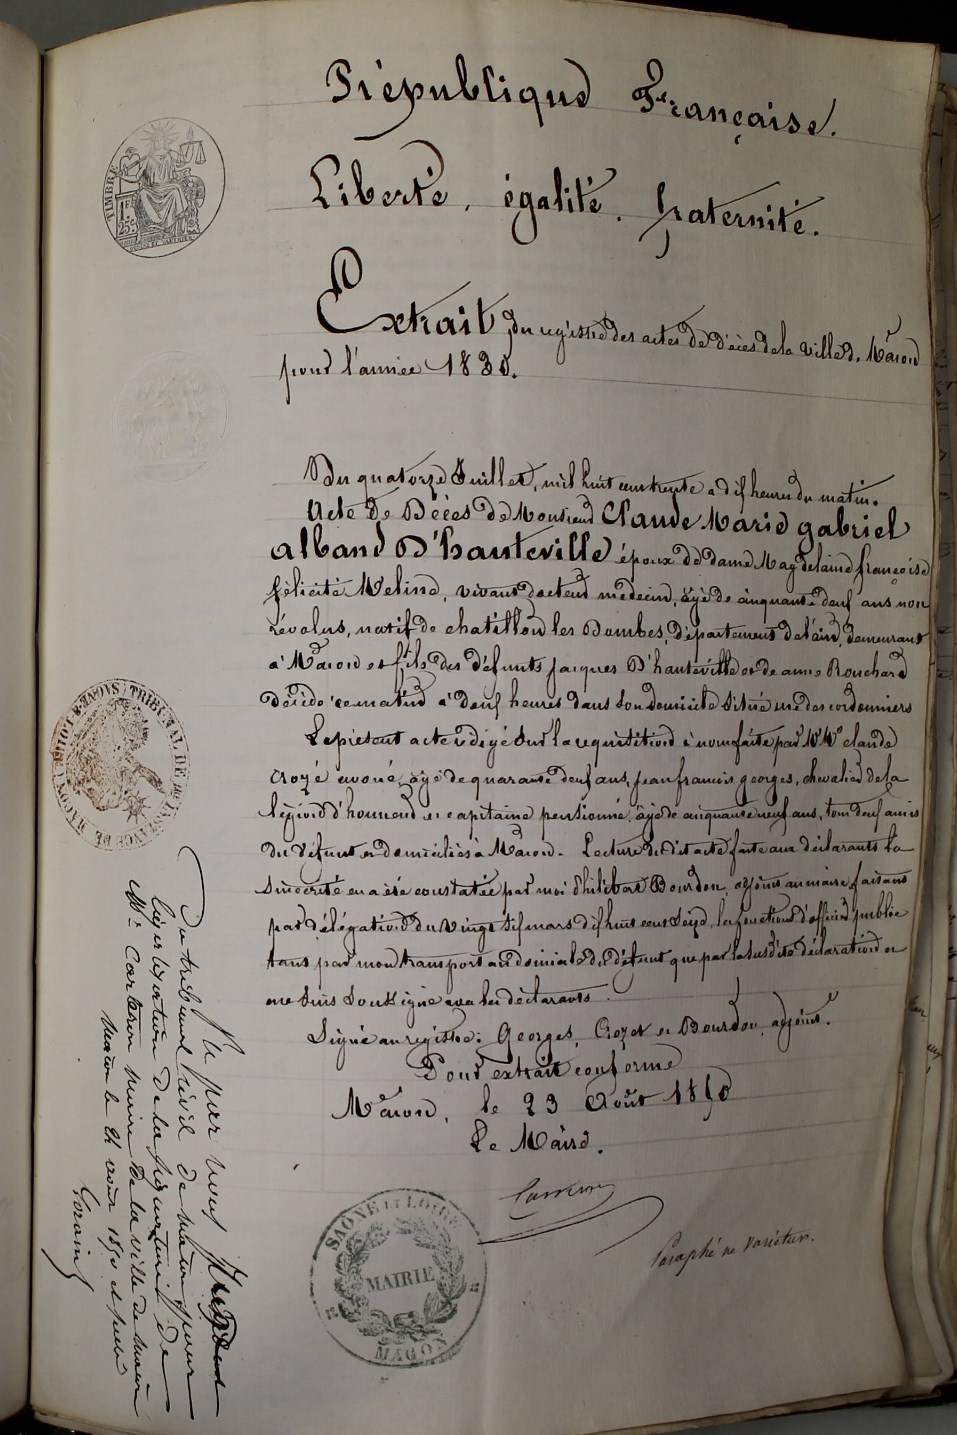 République Française.
Liberté, égalité, fraternité.
Extrait du registre des actes de décès de la ville de Mâcon
pour l'année 1830.
TIMBRE
1F
25c
Du quatorze Juillet, mil huit cent trente a dix heures du matin.
Acte de Décès de Monsieur Claude Marie gabriel
alband D'hauteville époux de dame Magdelaine françoise
félicité Melin, vivant docteur médecin, âgé de cinquante deux ans non
révolus, natif de chatillon les Dombes, département de l'ain, demeurant
à Mâcon et fils des défunts jacques D'hauteville et de anne Bouchard
décédé ce matin à deux heures dans son domicile situé rue des cordonniers
Le présent acte rédigé sur la requisition à nous faite par Mr Me claude
Crozé avoué, âgé de quarante deux ans, jean francois georges, chevalier de la
légion d'honneur et capitaine pensionné, âgé de cinquante neuf ans, tous deux amis
du défunt et domiciliés à Mâcon. Lecture du dit acte faite aux déclarants la
sincérité en a été constatée par moi Philibert Bourdon, adjoint au maire, faisant
par délégation du vingt six mars dix huit cent seize, les fonctions d'officier public
tant par mon transport au domicile du défunt que par la susdite déclaration et
me suis soussigné avec les déclarants.
Signé au registre: Georges, Crozet et Bourdon, adjoint.
Pour extrait conforme
Mâcon, le 23 Août 1850
Le Maire.
Paraphé ne varietur.
SAONE ET LOIRE
MAIRIE
MACON
TRIBUNAL DE 1ère INSTANCE DE MACON
Vu par nous Président
du tribunal civil de Mâcon pour
légalisation de la signature de
Mr Carteron maire de la ville de Mâcon
Mâcon le 24 août 1850